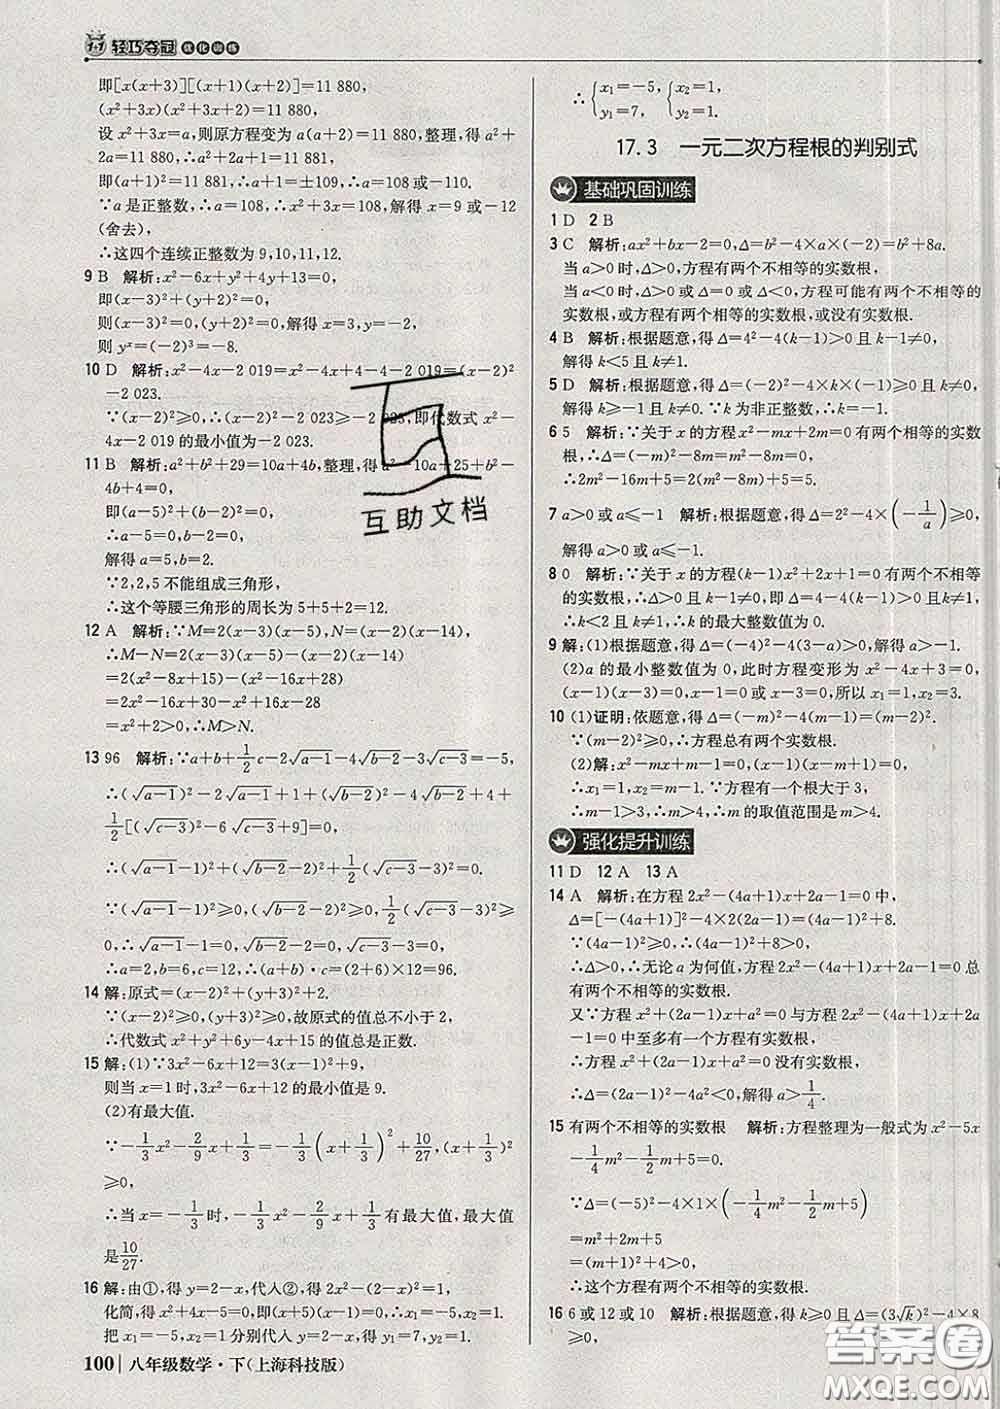 1+1 轻巧夺冠 优化训练
即[x(x+3)][(x+1)(x+2)]=11 880,
(x²+3x)(x²+3x+2)=11 880,
设 x²+3x=a,则原方程变为 a(a+2)=11 880,整理,得 a²+
2a=11 880,
即(a+1)²=11 881,∴a+1=±109,∴a=108或−110.
∵a是正整数,∴a=108,∴x²+3x=108,解得 x=9或−12
(舍去),
∴这四个连续正整数为9,10,11,12.
9 B 解析:x²−6x+y²+4y+13=0,
即(x−3)²+(y+2)²=0,
则(x−3)²=0,(y+2)²=0,解得 x=3,y=−2,
则 yˣ=(−2)³=−8.
10 D 解析:x²−4x−2 019=x²−4x+4−4−2 019=(x−2)²
−2 023.
∵(x−2)²≥0,∴(x−2)²−2 023≥−2 023,即代数式 x²−
4x−2 019的最小值为−2 023.
11 B 解析:a²+b²+29=10a+4b,整理,得 a²−10a+25+b²−
4b+4=0,
即(a−5)²+(b−2)²=0,
∴a−5=0,b−2=0,
解得 a=5,b=2.
∵2,2,5不能组成三角形,
∴这个等腰三角形的周长为5+5+2=12.
12 A 解析:∵M=2(x−3)(x−5),N=(x−2)(x−14),
∴M−N=2(x−3)(x−5)−(x−2)(x−14)
=2(x²−8x+15)−(x²−16x+28)
=2x²−16x+30−x²+16x−28
=x²+2>0,∴M>N.
13 96 解析:∵a+b+1/2c−2√(a−1)−4√(b−2)−3√(c−3)=−5,
∴(√(a−1))²−2√(a−1)+1+(√(b−2))²−4√(b−2)+4+
1/2[(√(c−3))²−6√(c−3)+9]=0,
∴(√(a−1)−1)²+(√(b−2)−2)²+1/2(√(c−3)−3)²=0.
∵(√(a−1)−1)²≥0,(√(b−2)−2)²≥0,1/2(√(c−3)−3)²≥
0,∴√(a−1)−1=0,√(b−2)−2=0,√(c−3)−3=0,
∴a=2,b=6,c=12,∴(a+b)·c=(2+6)×12=96.
14 解:原式=(x−2)²+(y+3)²+2.
∵(x−2)²≥0,(y+3)²≥0,故原式的值总不小于2,
∴代数式 x²+y²+6y−4x+15的值总是正数.
15 解:(1)∵3x²−6x+12=3(x−1)²+9,
则当 x=1时,3x²−6x+12的最小值是9.
(2)有最大值.
∵−1/3x²−2/9x+1/3=−1/3(x+1/3)²+10/27,−1/3(x+1/3)²≤
0,
∴当 x=−1/3时,−1/3x²−2/9x+1/3有最大值,最大值
是10/27.
16 解:由①,得 y=2−x,代入②,得2x²−(2−x)²=1,
化简,得 x²+4x−5=0,即(x+5)(x−1)=0,∴x₁=−5,x₂=1.
把 x₁=−5,x₂=1分别代入 y=2−x,得 y₁=7,y₂=1.
100 八年级数学·下(上海科技版)
∴{x₁=−5, {x₂=1,
y₁=7, y₂=1.
17.3 一元二次方程根的判别式
基础巩固训练
1 D 2 B
3 C 解析:ax²+bx−2=0,Δ=b²−4×a×(−2)=b²+8a.
当 a>0时,Δ>0,方程有两个不相等的实数根,
当 a<0时,Δ>0或Δ=0或Δ<0,方程可能有两个不相等的
实数根,或方程有两个相等的实数根,或没有实数根.
4 B 解析:根据题意,得Δ=4²−4(k−1)>0且 k−1≠0,
解得 k<5且 k≠1.
5 D 解析:根据题意,得Δ=(−2)²−4×k×(−1)≥0且 k≠
0,解得 k≥−1且 k≠0.∵k为非正整数,∴k=−1.
6 5 解析:∵关于 x的方程 x²−mx+2m=0有两个相等的实数
根,∴Δ=(−m)²−4×2m=m²−8m=0,
∴2m²−16m+5=2(m²−8m)+5=5.
7 a>0或a≤−1 解析:根据题意,得Δ=2²−4×(−1/a)≥0,
解得 a>0或 a≤−1.
8 0 解析:∵关于 x的方程(k−1)x²+2x+1=0有两个不相等
的实数根,∴Δ>0且 k−1≠0,即Δ=4−4(k−1)>0且 k≠1,
∴k<2且 k≠1,∴k的最大整数值为0.
9 解:(1)根据题意,得Δ=(−4)²−4(3−a)>0,解得 a>−1.
(2)a的最小整数值为0,此时方程变形为 x²−4x+3=0,
(x−1)(x−3)=0,x−1=0或 x−3=0,所以 x₁=1,x₂=3.
10 (1)证明:依题意,得Δ=(−m)²−4(m−1)=(m−2)².
∵(m−2)²≥0,∴方程总有两个实数根.
(2)解:x²−mx+m−1=0,(x−1)(x−m+1)=0,
∴x₁=1,x₂=m−1.∵方程有一个根大于3,
∴m−1>3,∴m>4,∴m的取值范围是 m>4.
强化提升训练
11 D 12 A 13 A
14 A 解析:在方程2x²−(4a+1)x+2a−1=0中,
Δ=[−(4a+1)]²−4×2(2a−1)=(4a−1)²+8.
∵(4a−1)²≥0,∴(4a−1)²+8>0,
∴Δ>0,∴无论 a为何值,方程2x²−(4a+1)x+2a−1=0总
有两个不相等的实数根.
又∵方程 x²+(2a−1)x+a²=0与方程2x²−(4a+1)x+2a−
1=0中至多有一个方程有实数根,
∴方程 x²+(2a−1)x+a²=0没有实数根,
∴Δ=(2a−1)²−4a²<0,解得 a>1/4.
15 有两个不相等的实数根 解析:方程整理为一般式为 x²−5x
−1/4m²−1/2m+5=0.
∵Δ=(−5)²−4×1×(−1/4m²−1/2m+5)
=m²+2m+5
=(m+1)²+4>0,
∴这个方程有两个不相等的实数根.
16 6或12或10 解析:根据题意,得 k≥0且Δ=(3√k)²−4×8
≥0,
互助文档
答案圈
MXQE.COM